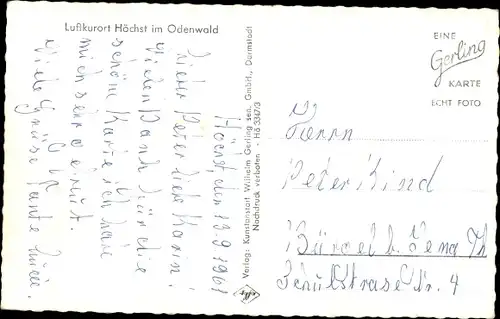 Luftkurort Höchst im Odenwald
Höchst, den 13.9.1961
Lieber Peter liebe Karin!
Vielen Dank für die
schöne Karte ich habe
mich sehr gefreut.
Viele Grüße Tante
Verlag: Kunstanstalt Wilhelm Gerling sen. GmbH., Darmstadt
Nachdruck verboten - Hö 3347/3
EINE
Gerling
KARTE
ECHT FOTO
Herrn
Peter Kind
Bürgel b. Jena /Th
Schulstrase Nr. 4